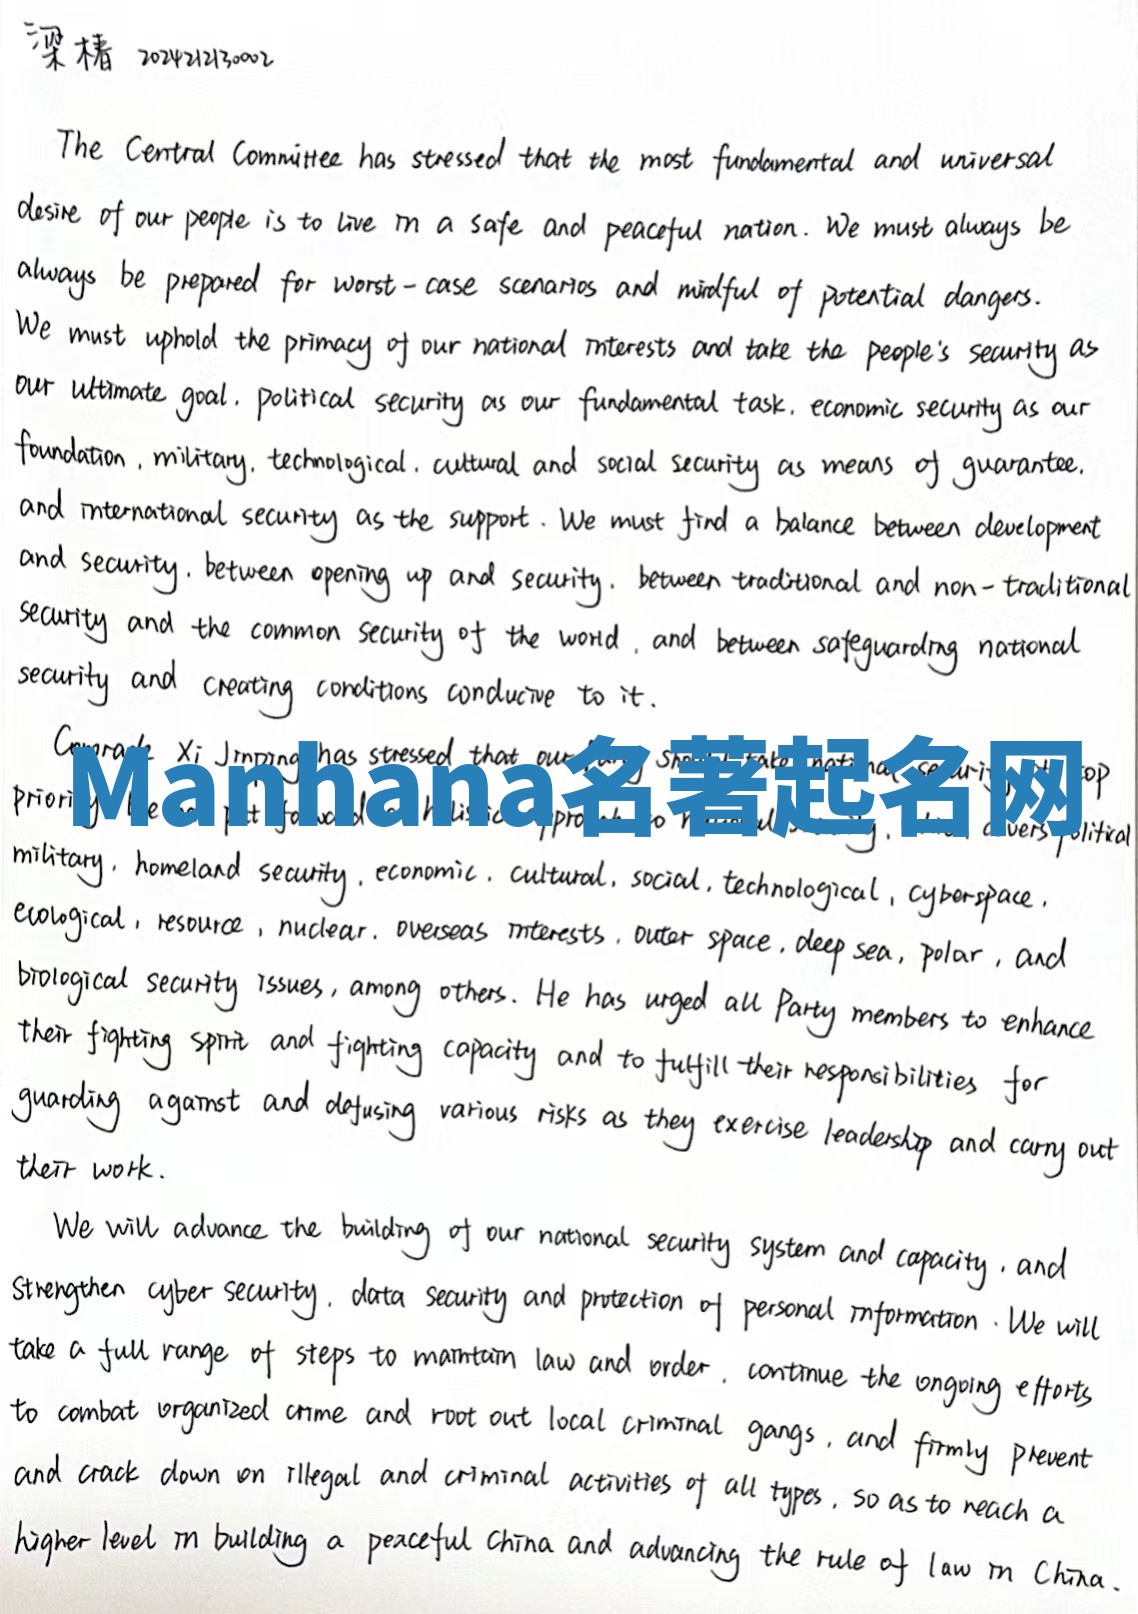 梁椿 2024212130002
The Central Committee has stressed that the most fundamental and universal
desire of our people is to live in a safe and peaceful nation. We must always be
always be prepared for worst-case scenarios and mindful of potential dangers.
We must uphold the primacy of our national interests and take the people's security as
our ultimate goal, political security as our fundamental task, economic security as our
foundation, military, technological, cultural and social security as means of guarantee,
and international security as the support. We must find a balance between development
and security, between opening up and security, between traditional and non-traditional
security and the common security of the world, and between safeguarding national
security and creating conditions conducive to it.
Comrade Xi Jinping has stressed that our
Manhana名著起名网
priority political
military, homeland security, economic, cultural, social, technological, cyberspace,
ecological, resource, nuclear, overseas interests, outer space, deep sea, polar, and
biological security issues, among others. He has urged all Party members to enhance
their fighting spirit and fighting capacity and to fulfill their responsibilities for
guarding against and defusing various risks as they exercise leadership and carry out
their work.
We will advance the building of our national security system and capacity, and
strengthen cyber security, data security and protection of personal information. We will
take a full range of steps to maintain law and order, continue the ongoing efforts
to combat organized crime and root out local criminal gangs, and firmly prevent
and crack down on illegal and criminal activities of all types, so as to reach a
higher level in building a peaceful China and advancing the rule of law in China.